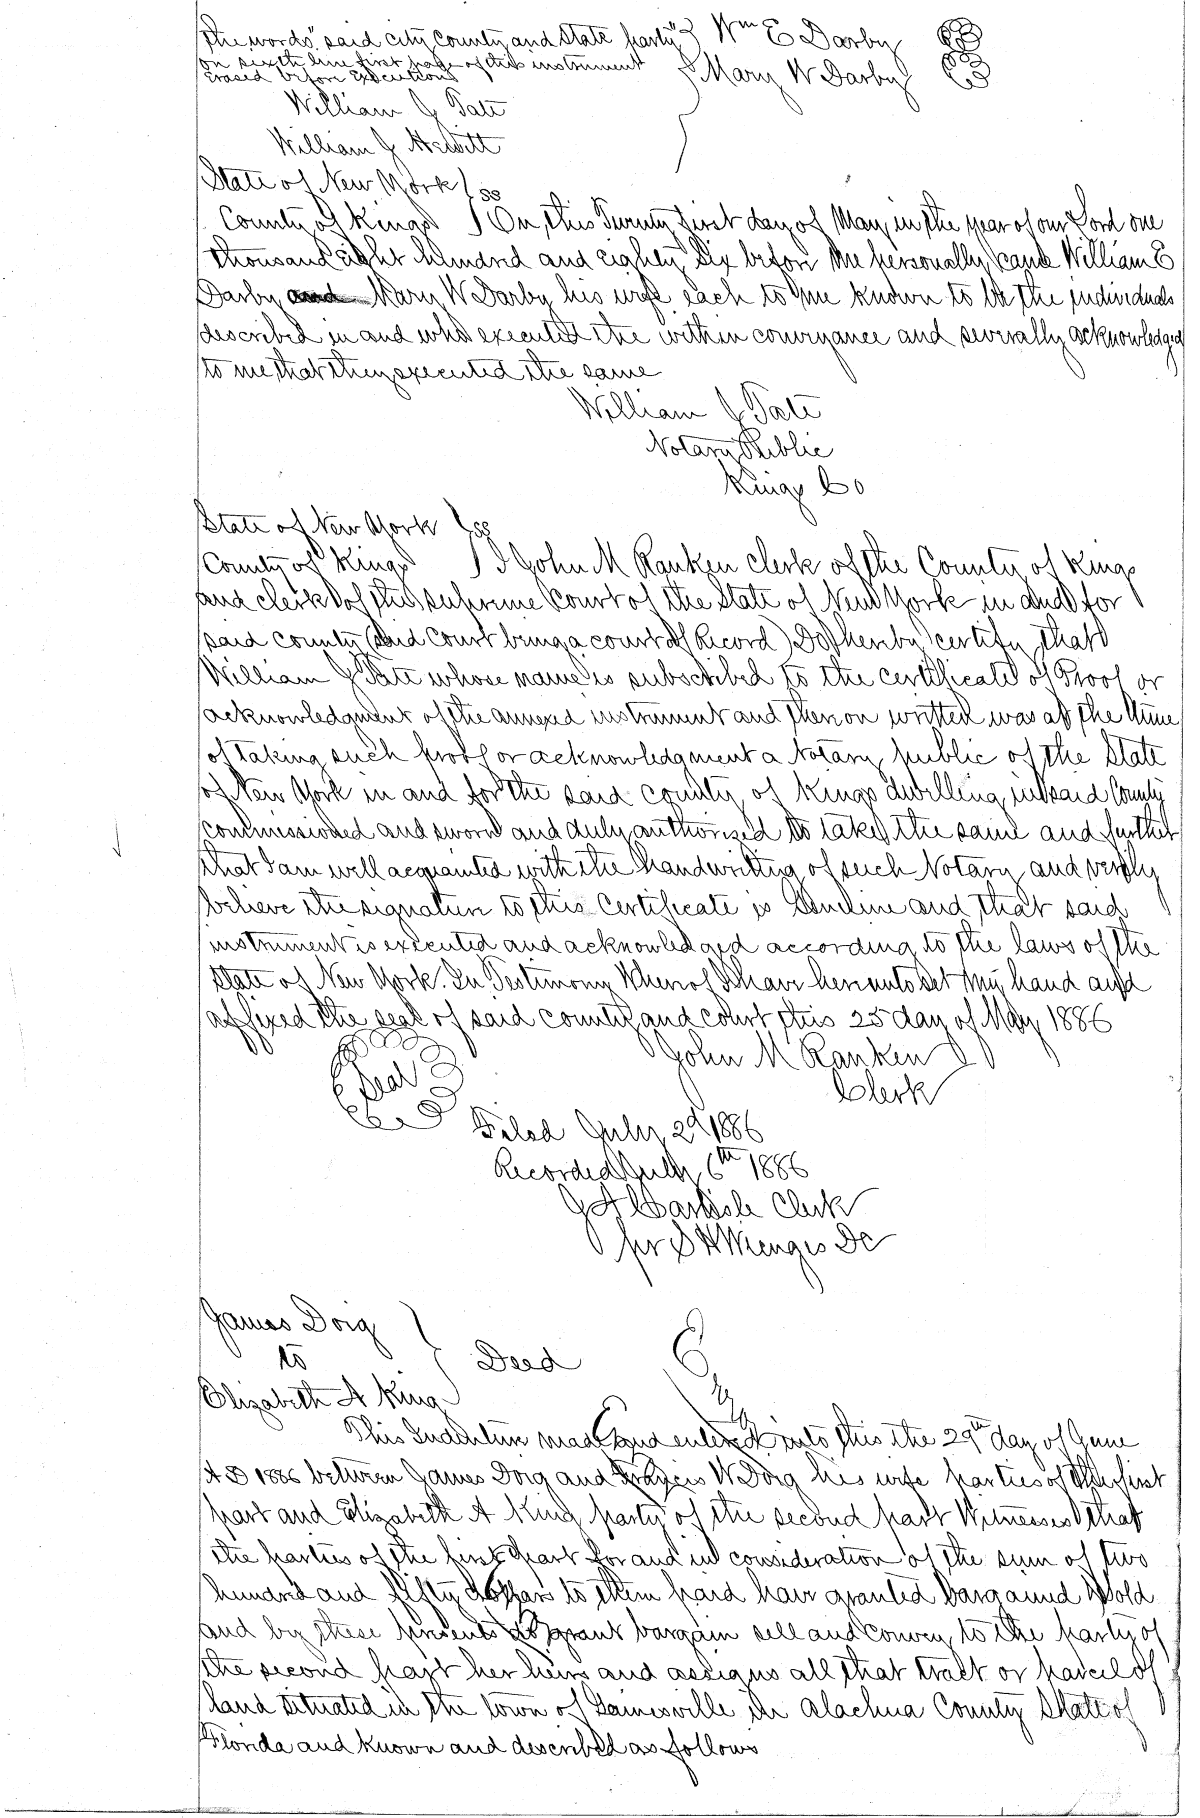 the words "said city county and State party"
on sixth line first page of this instrument
erased before execution
Wm E Darby
Mary W Darby
William J Tate
William J Hewitt
State of New York } ss
County of Kings } On this Twenty first day of May in the year of our Lord one
thousand Eight hundred and eighty Six before me personally came William E
Darby and Mary W Darby his wife each to me known to be the individuals
described in and who executed the within conveyance and severally acknowledged
to me that they executed the same
William J Tate
Notary Public
Kings Co
State of New York } ss
County of Kings } I John M Ranken clerk of the County of Kings
and clerk of the supreme court of the State of New York in and for
said county (said court being a court of Record) Do hereby certify that
William J Tate whose name is subscribed to the certificate of Proof or
acknowledgment of the annexed instrument and thereon written was at the time
of taking such proof or acknowledgment a Notary public of the State
of New York in and for the said county of Kings dwelling in said County
commissioned and sworn and duly authorized to take the same and further
that I am well acquainted with the handwriting of such Notary and verily
believe the signature to this Certificate is Genuine and that said
instrument is executed and acknowledged according to the laws of the
State of New York. In Testimony Whereof I have hereunto set my hand and
affixed the seal of said county and court this 25 day of May 1886
John M Ranken
Seal
Clerk
Filed July 2d 1886
Recorded July 6th 1886
J A Carlisle Clerk
per S H Wienges DC
James Doig
to } Deed
Elizabeth A King
This Indenture made and entered into this the 29th day of June
A D 1886 between James Doig and Francis W Doig his wife parties of the first
part and Elizabeth A King party of the second part Witnesses that
the parties of the first part for and in consideration of the sum of two
hundred and fifty dollars to them paid have granted bargained & sold
and by these presents do grant bargain sell and convey to the party of
the second part her heirs and assigns all that tract or parcel of
land situated in the town of Gainesville in Alachua County State of
Florida and known and described as follows